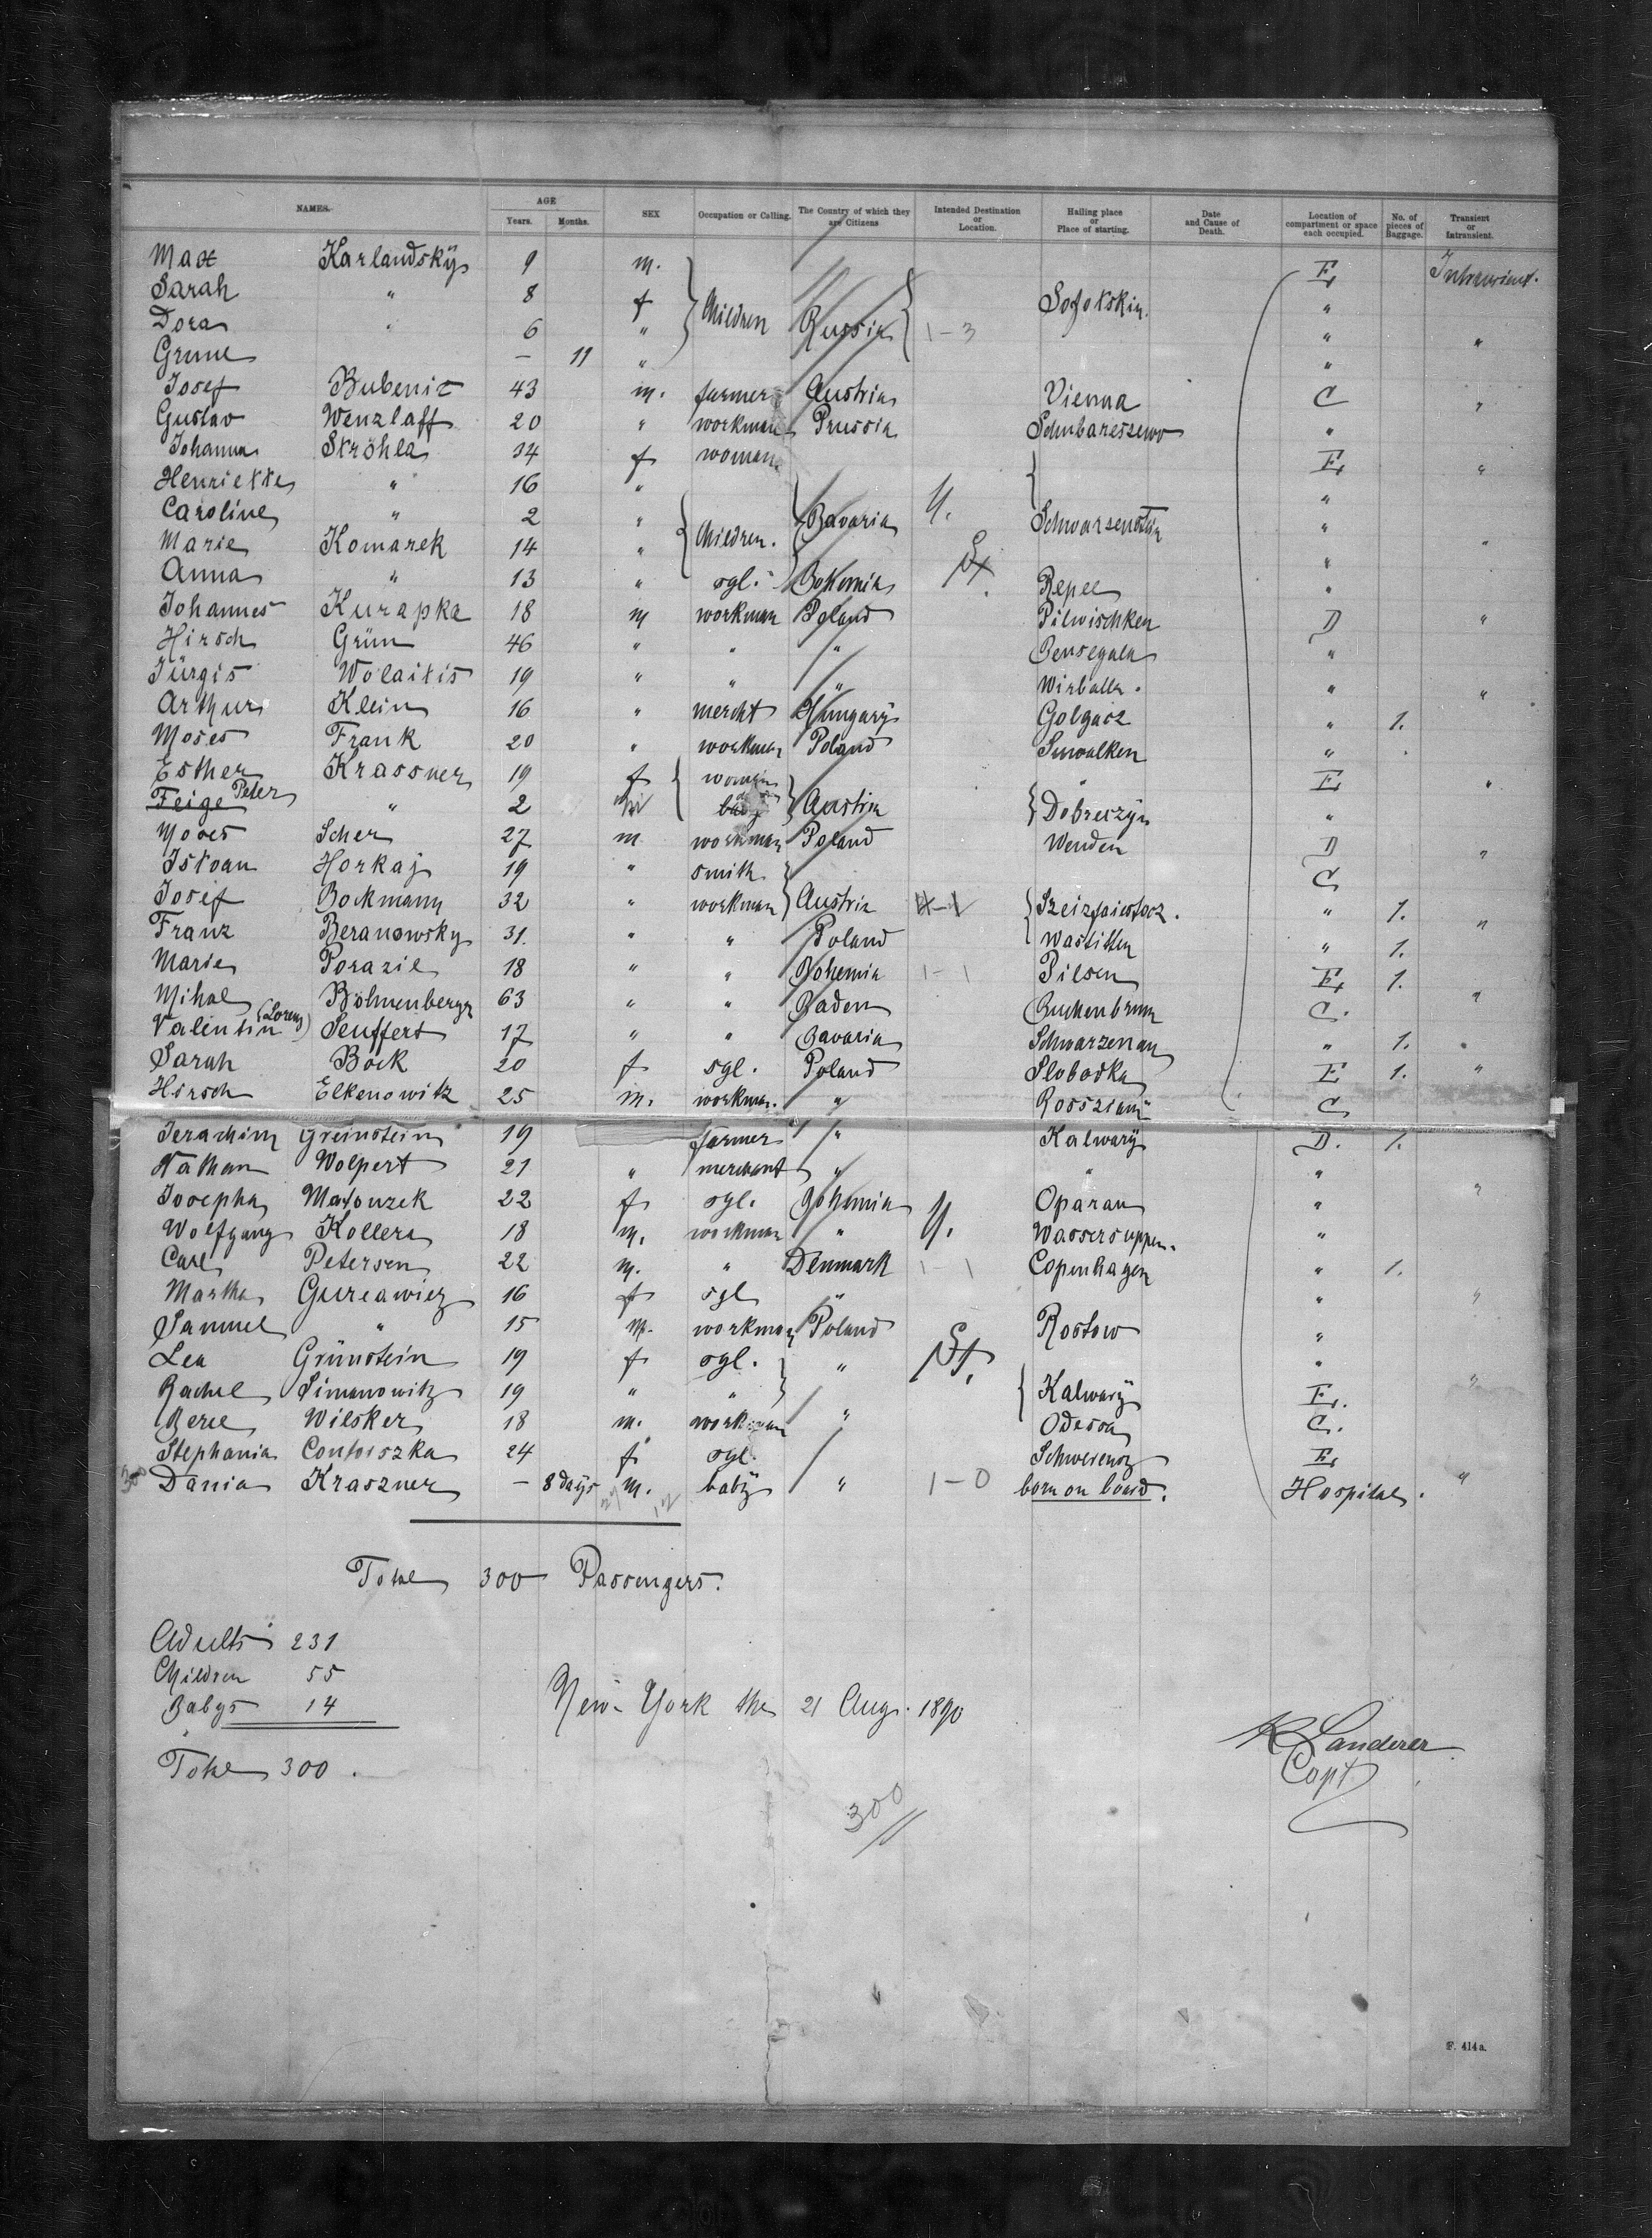 NAMES. AGE Years. Months. SEX Occupation or Calling. The Country of which they are Citizens Intended Destination or Location. Hailing place or Place of starting. Date and Cause of Death. Location of compartment or space each occupied. No. of pieces of Baggage. Transient or Intransient.
Max Karlandsky 9 m. E Intransient.
Sarah " 8 f Children Russia "
Dora " 6 " 1-3 " "
Grune — 11 " "
Josef Bubenic 43 m. farmer Austria Vienna C "
Gustav Wenzlaff 20 " workman Prussia "
Johanna Ströhla 34 f woman E "
Henriette " 16 " "
Caroline " 2 " Children. Bavaria Schwarzenstein "
Marie Komarek 14 " " "
Anna " 13 " sgl. Bohemia Repel "
Johannes Kurapka 18 m workman Poland Pilwischken D "
Hirsch Grün 46 " " " "
Jürgis Wolaitis 19 " " " Wirballen. " "
Arthur Klein 16 " mercht Hungary Golgocz " 1.
Moses Frank 20 " workman Poland Suwalken "
Esther Krassner 19 f woman " E "
Feige Peter " 2 baby Austria Dobrezyn "
Moses Scher 27 m workman Poland Wenden D "
Istvan Horkaj 19 " smith C
Josef Bockmann 32 " workman Austria " 1. "
Franz Beranowsky 31. " " Poland " 1.
Marie Porazil 18 " " Bohemia 1-1 Pilsen E 1.
Mihal Böhmenberger 63 " " Baden C. "
Valentin (Lorenz) Seuffert 17 " " Bavaria Schwarzenau " 1.
Sarah Bock 20 f sgl. Poland Slobodka E 1. "
Hirsch Elkenowitz 25 m. workman. " C
Greinstein 19 farmer " Kalwary D. 1.
Nathan Wolpert 21 " merchant " " "
Josepha Matouzek 22 f sgl. Bohemia Oparau " "
Wolfgang Kollera 18 m. workman " Wassersuppen. "
Carl Petersen 22 m. " Denmark 1-1 Copenhagen " 1.
Martha 16 f sgl " " "
Samuel " 15 m. workman Poland Rostow "
Lea Grünstein 19 f sgl. " "
Rachel Simanowitz 19 " " Kalwary E. "
Berel Wilsker 18 m. workman " Odessa C.
Stephania 24 f sgl. Schwerenz E
300 Dania Kraszner — 8 days m. baby " 1-0 born on board. Hospital. "
Total 300 Passengers.
Adults 231
Children 55
Babys 14
New-York the 21 Aug. 1890
Total 300.
K Landerer
Capt
300
F. 414a.